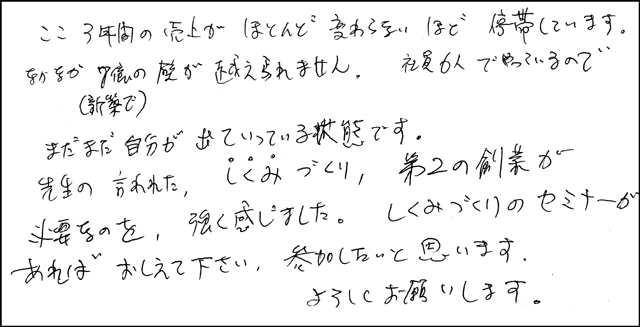 ここ3年間の売上がほとんど変わらないほど停帯しています。
なかなか7億の壁が越えられません。社員6人でやっているので
(新築で)
まだまだ自分が出ていっている状態です。
先生の言われた、しくみづくり,第2の創業が
必要なのを,強く感じました。しくみづくりのセミナーが
あればおしえて下さい,参加したいと思います.
よろしくお願いします。